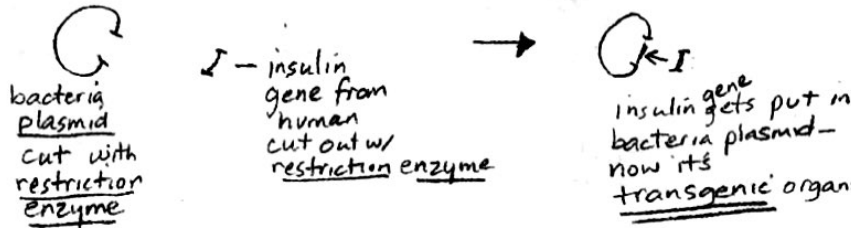 bacteria
plasmid
cut with
restriction
enzyme
I - insulin
gene from
human
cut out w/
restriction enzyme
I
insulin gene gets put in
bacteria plasmid-
now it's
transgenic organ